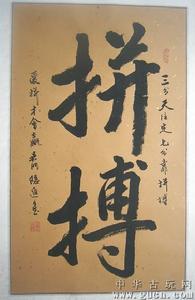 三分天注定七分靠拼搏
拼搏
愛拼才會贏
中华古玩网
www.gucn.com